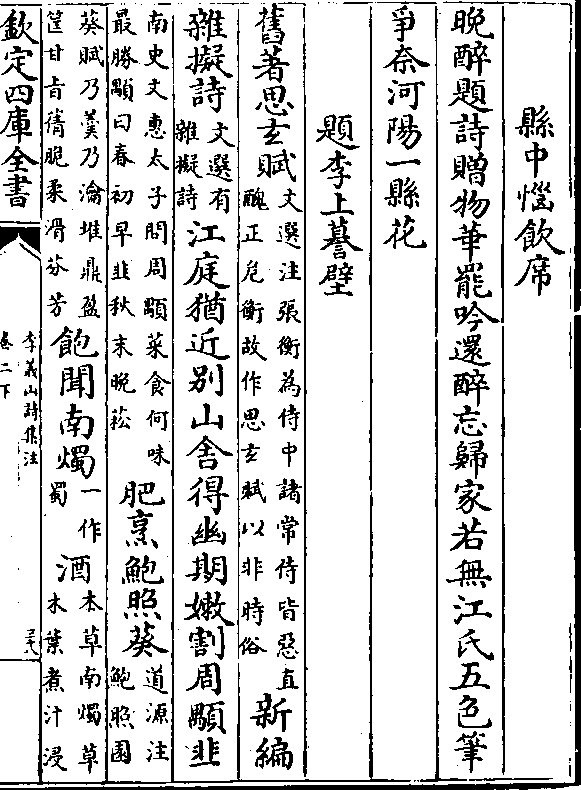 縣中惱飲席
晚醉題詩贈物華罷吟還醉忘歸家若無江氏五色筆
爭奈河陽一縣花
題李上謩壁
舊著思玄賦文選注張衡為侍中諸常侍皆惡直醜正危衡故作思玄賦以非時俗新編
雜擬詩文選有雜擬詩江庭猶近别山舍得幽期嫩割周顒韭
南史文惠太子問周顒菜食何味最勝顒曰春初早韭秋末晚菘肥烹鮑照葵道源注鮑照園
葵賦乃羹乃瀹堆鼎盈筐甘旨蒨脆柔滑芬芳飽聞南燭一作蜀酒本草南燭草木葉煮汁浸
欽定四庫全書
李義山詩集注
卷二下